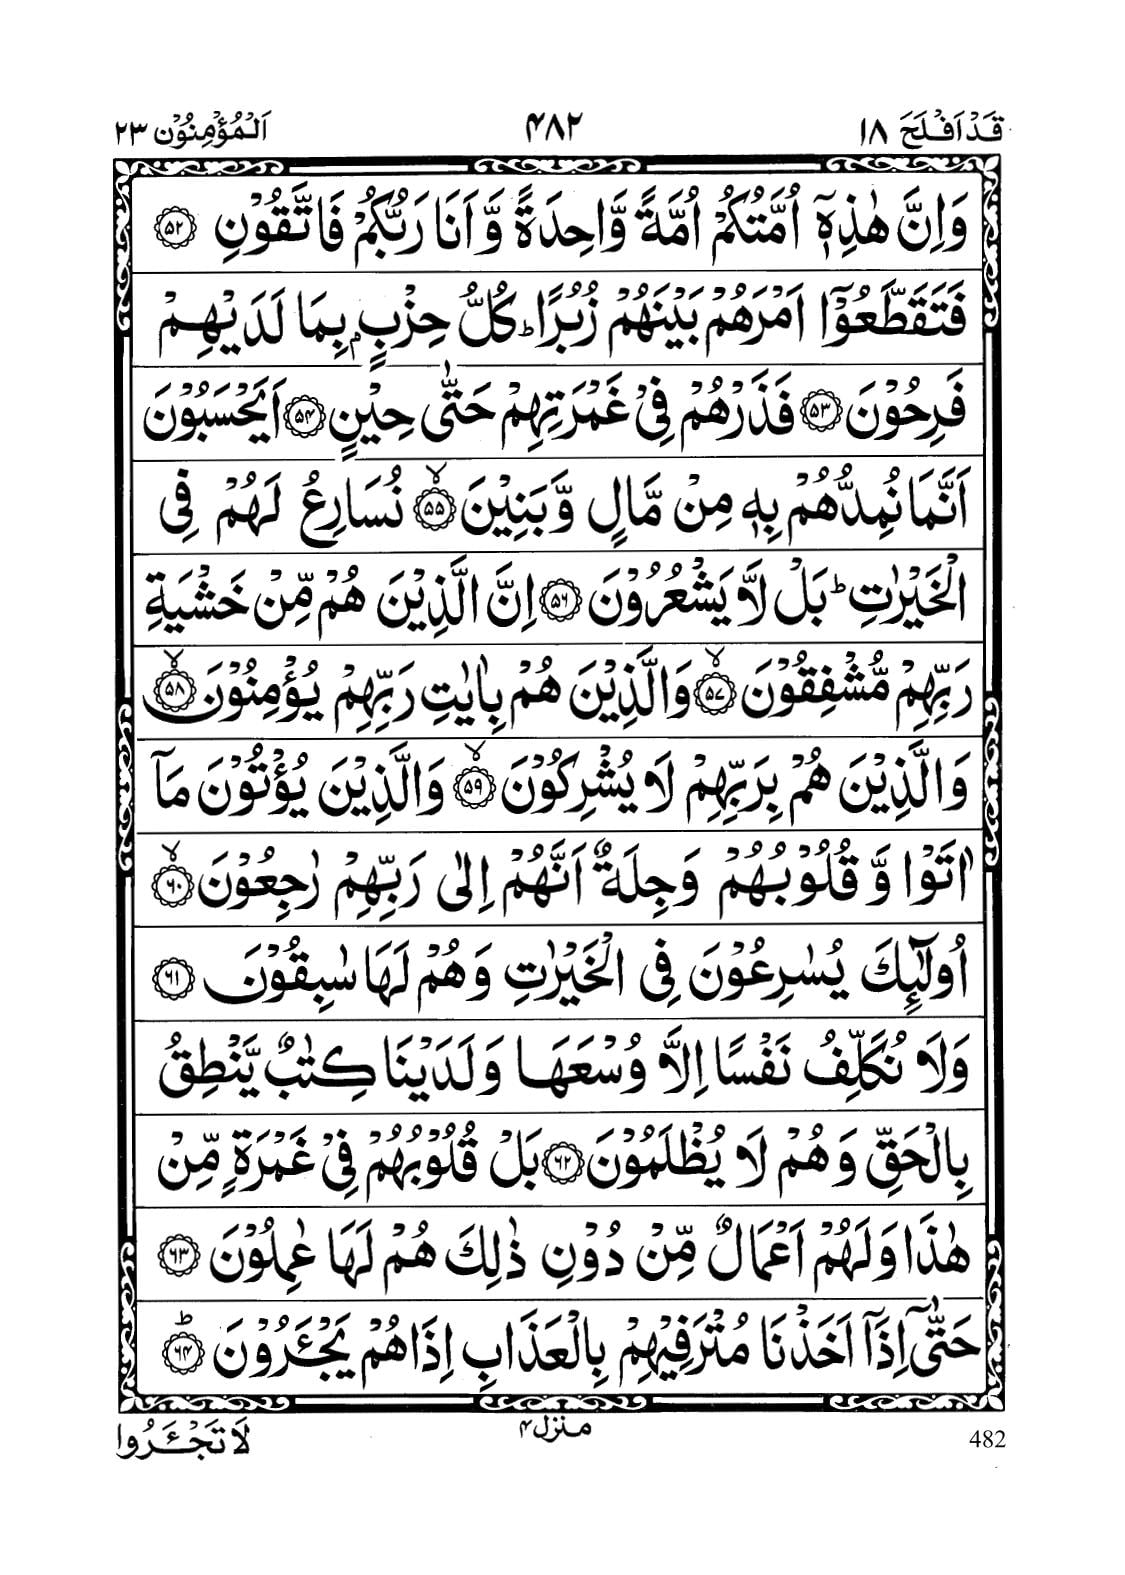 قَدْ اَفْلَحَ ۱۸ ۴۸۲ اَلْمُؤْمِنُوْن ۲۳
وَاِنَّ هٰذِهٖۤ اُمَّتُكُمْ اُمَّةً وَّاحِدَةً وَّاَنَا رَبُّكُمْ فَاتَّقُوْنِ ۵۲
فَتَقَطَّعُوْۤا اَمْرَهُمْ بَيْنَهُمْ زُبُرًا ؕ كُلُّ حِزْبٍۭ بِمَا لَدَيْهِمْ
فَرِحُوْنَ ۵۳ فَذَرْهُمْ فِيْ غَمْرَتِهِمْ حَتّٰى حِيْنٍ ۵۴ اَيَحْسَبُوْنَ
اَنَّمَا نُمِدُّهُمْ بِهٖ مِنْ مَّالٍ وَّبَنِيْنَ ۙ ۵۵ نُسَارِعُ لَهُمْ فِى
الْخَيْرٰتِ ؕ بَلْ لَّا يَشْعُرُوْنَ ۵۶ اِنَّ الَّذِيْنَ هُمْ مِّنْ خَشْيَةِ
رَبِّهِمْ مُّشْفِقُوْنَ ۙ ۵۷ وَالَّذِيْنَ هُمْ بِاٰيٰتِ رَبِّهِمْ يُؤْمِنُوْنَ ۙ ۵۸
وَالَّذِيْنَ هُمْ بِرَبِّهِمْ لَا يُشْرِكُوْنَ ۙ ۵۹ وَالَّذِيْنَ يُؤْتُوْنَ مَاۤ
اٰتَوْا وَّقُلُوْبُهُمْ وَجِلَةٌ اَنَّهُمْ اِلٰى رَبِّهِمْ رٰجِعُوْنَ ۙ ۶۰
اُولٰٓئِكَ يُسٰرِعُوْنَ فِى الْخَيْرٰتِ وَهُمْ لَهَا سٰبِقُوْنَ ۶۱
وَلَا نُكَلِّفُ نَفْسًا اِلَّا وُسْعَهَا وَلَدَيْنَا كِتٰبٌ يَّنْطِقُ
بِالْحَقِّ وَهُمْ لَا يُظْلَمُوْنَ ۶۲ بَلْ قُلُوْبُهُمْ فِيْ غَمْرَةٍ مِّنْ
هٰذَا وَلَهُمْ اَعْمَالٌ مِّنْ دُوْنِ ذٰلِكَ هُمْ لَهَا عٰمِلُوْنَ ۶۳
حَتّٰۤى اِذَاۤ اَخَذْنَا مُتْرَفِيْهِمْ بِالْعَذَابِ اِذَا هُمْ يَجْـَٔرُوْنَ ؕ ۶۴
482 منزل ۴ لَا تَجْـَٔرُوا